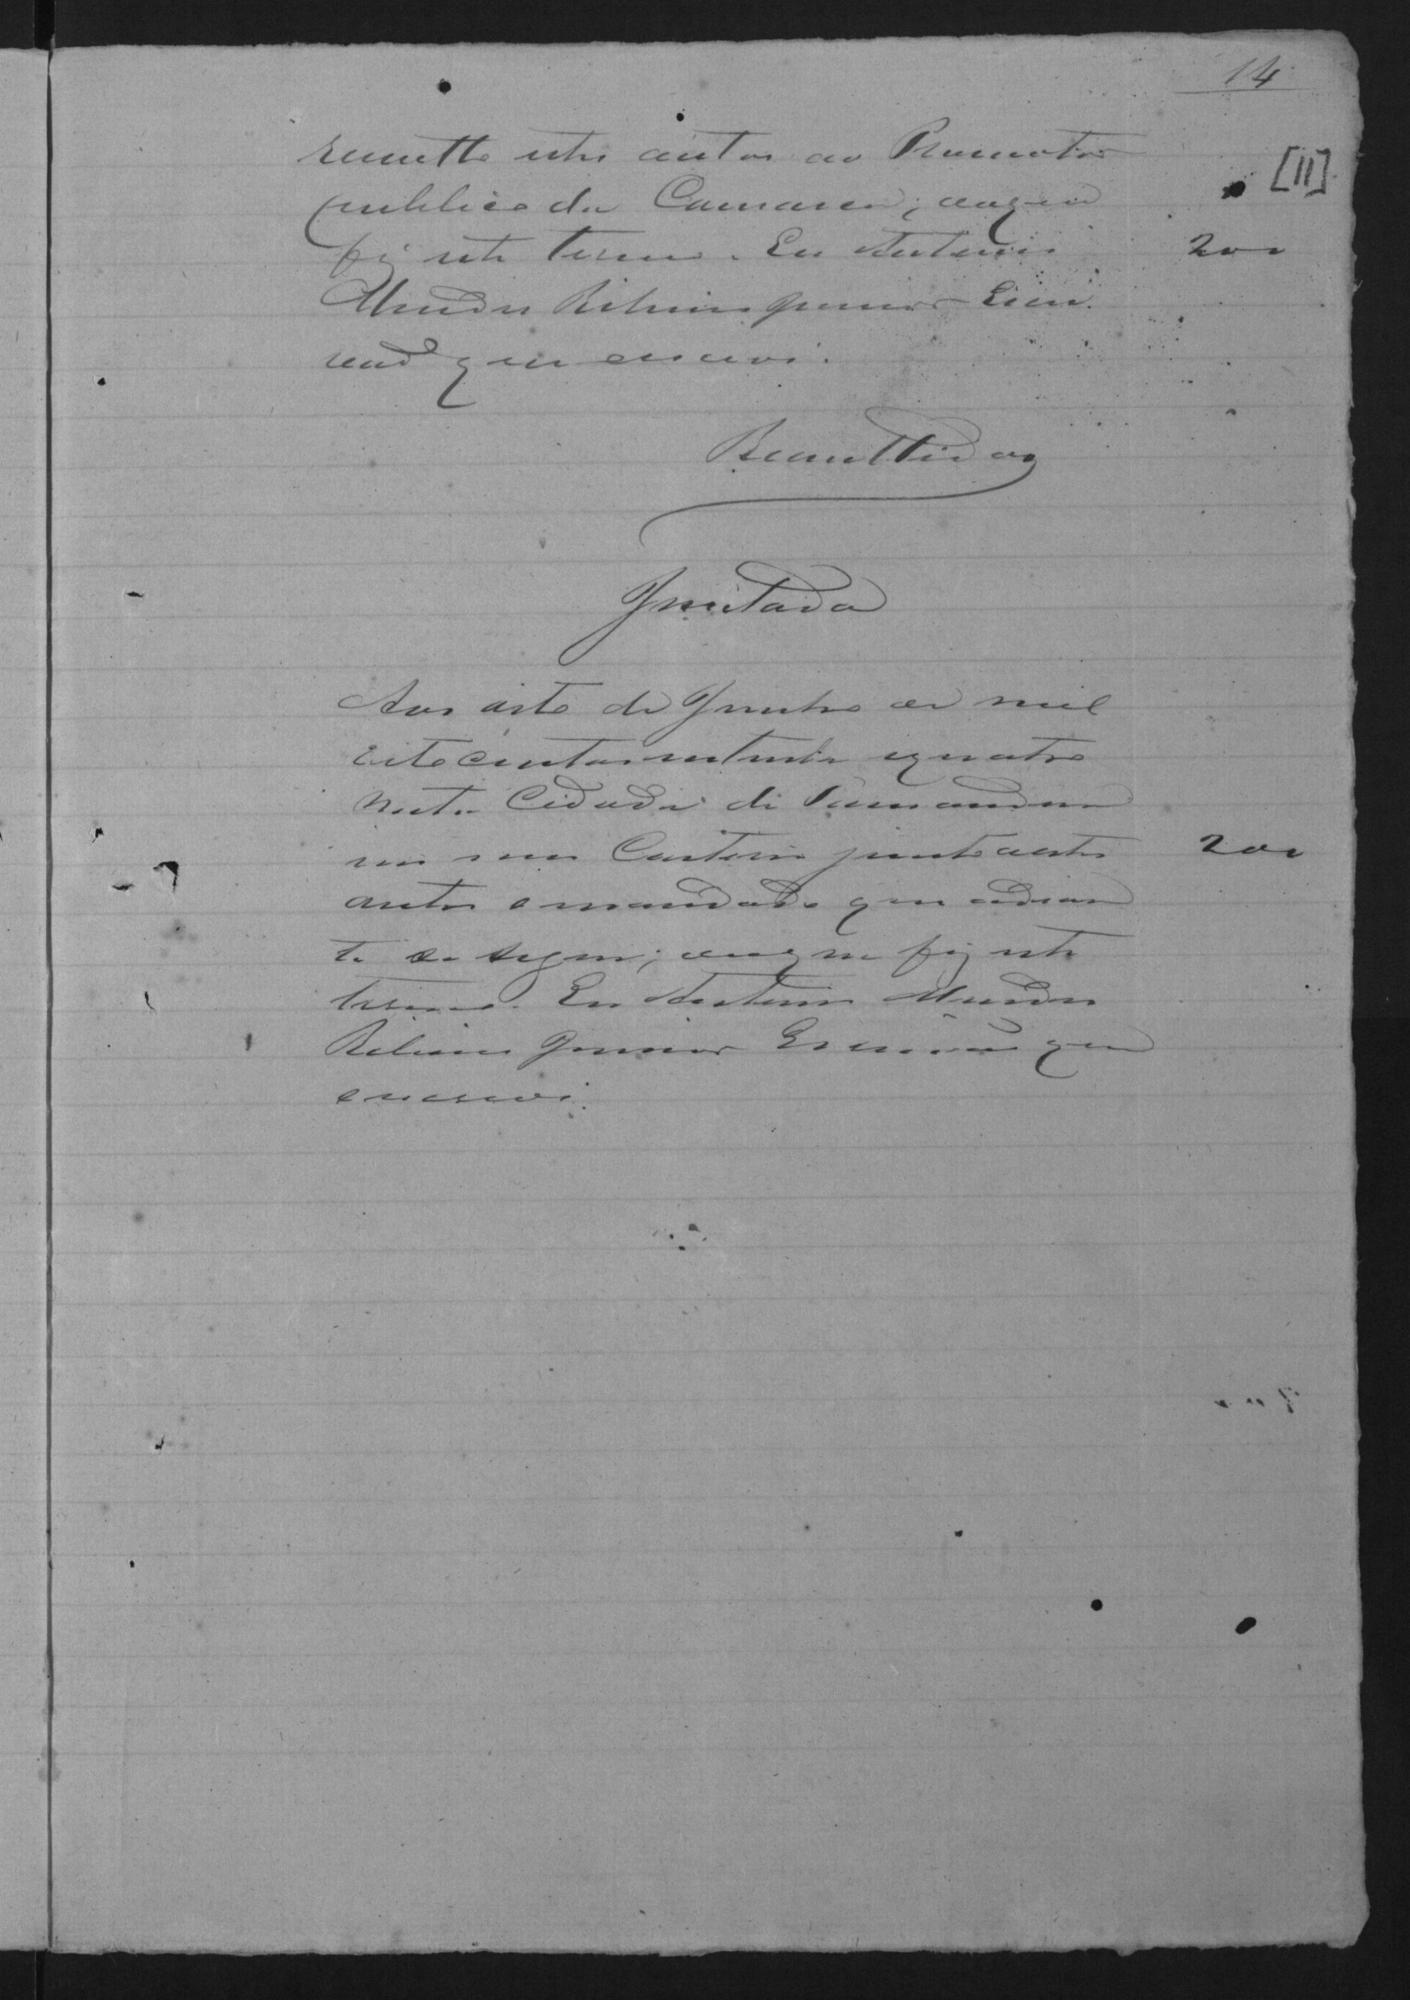 14
[11]
remetto estes autos ao Promotor
publico da Comarca; do que
fiz este termo. Eu Antonio
200
Mendes Ribeiro Junior Escri
vaõ que escrevi.
Remettidos
Juntada
Aos oito de Junho de mil
oito centos setenta e quatro
nesta Cidade de
em meu Cartorio junto a estes
200
autos o mandado que adian
te se segue; do que fiz este
termo. Eu Antonio Mendes
Ribeiro Junior Escrivaõ que
escrevi.